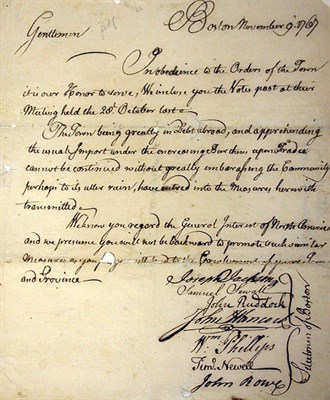 Boston November 9. 1767
Gentlemen
In obedience to the Orders of the Town
it is our Honor to serve, We inclose you the Votes past at their
Meeting held the 28th. October last —
The Town being greatly in Debt abroad, and apprehending
the usual Import under the increasing Burthen upon Trade
cannot be continued without greatly embarassing the Community
perhaps to its utter ruin, have entred into the Measures herewith
transmitted —
We know you regard the General Interest of North America
and we presume you will not be backward to promote such similar
Measures as you
and Province —
Joseph Jackson
Samuel Sewall
John Ruddock
John Hancock
Wm. Phillips
Timo. Newell
John Rowe
Selectmen of Boston